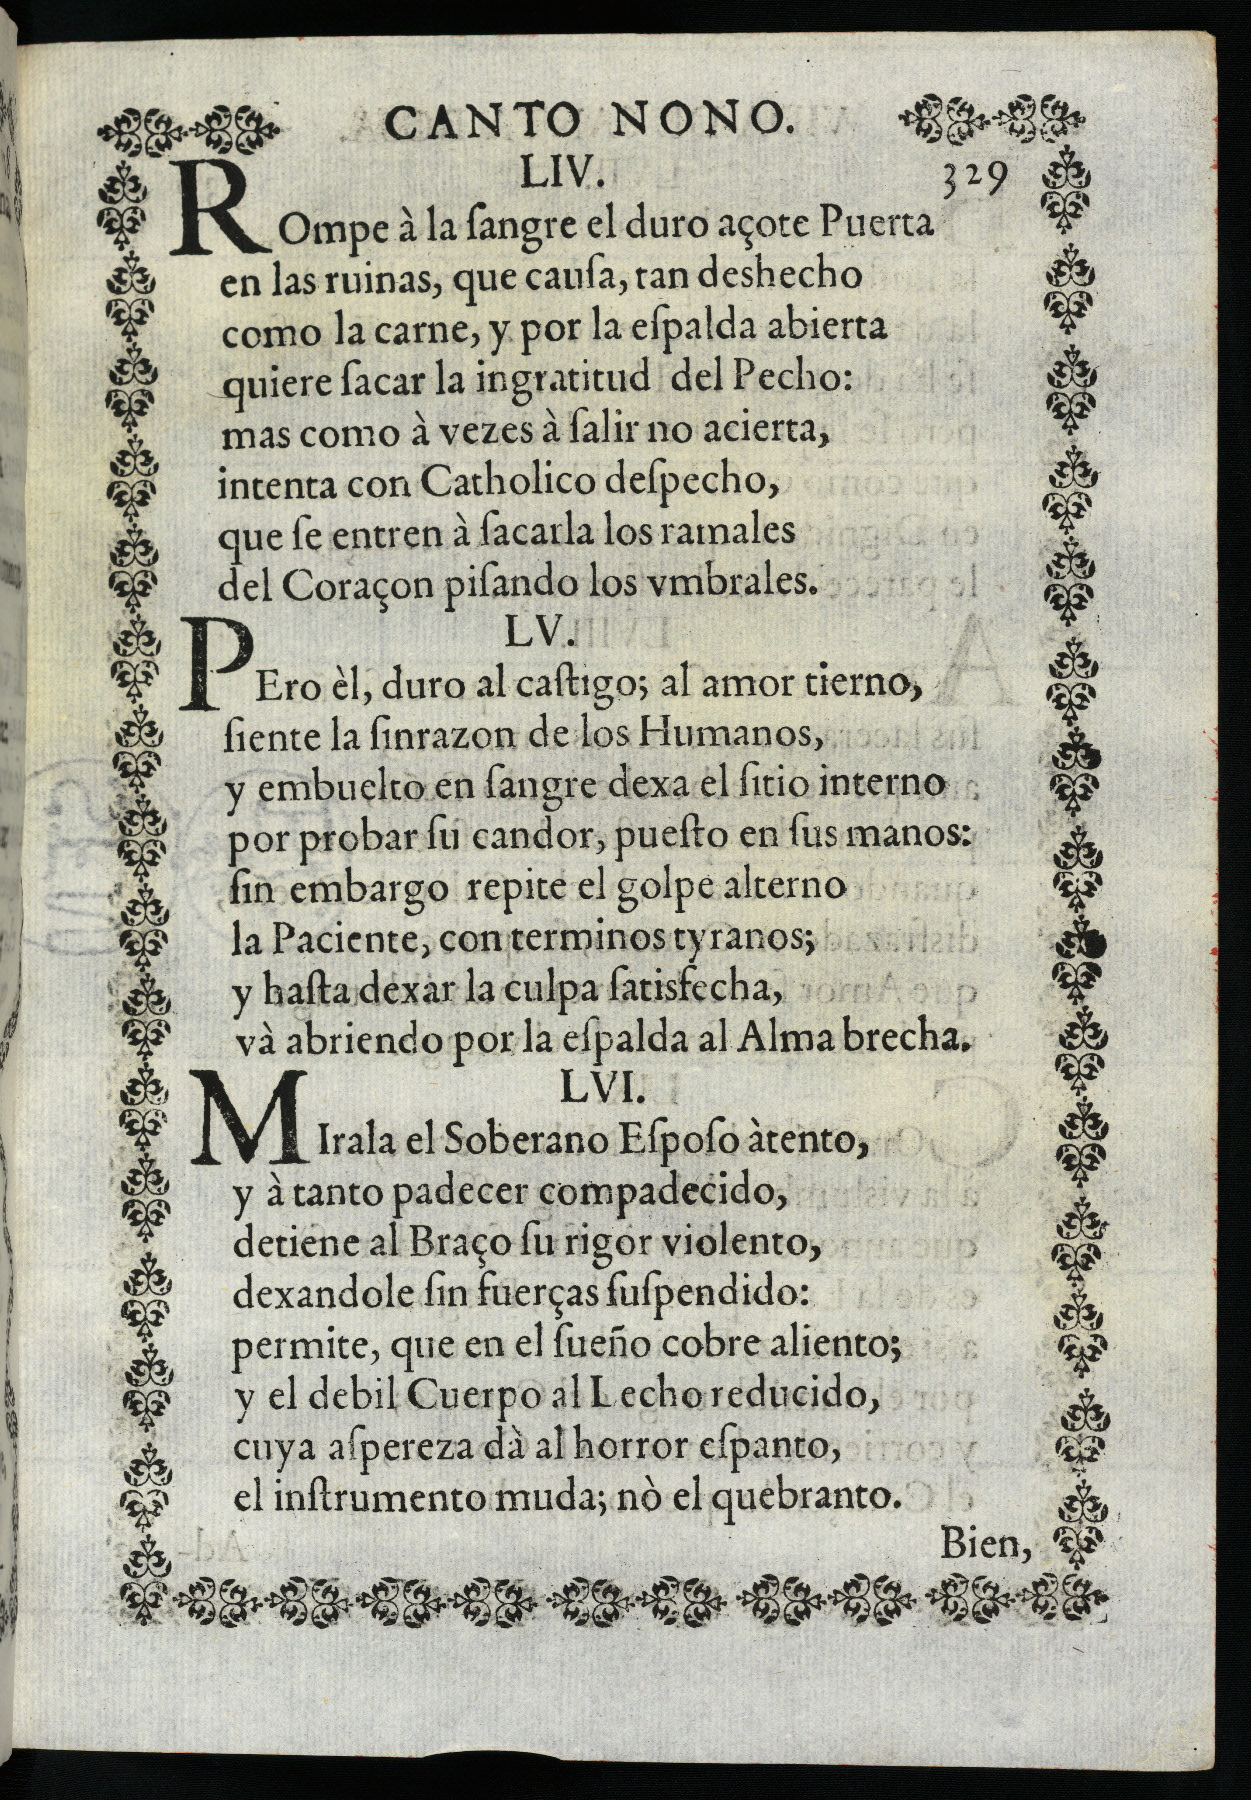 CANTO NONO.
LIV. 329
ROmpe à la ſangre el duro açote Puerta
en las ruinas, que cauſa, tan deshecho
como la carne, y por la eſpalda abierta
quiere ſacar la ingratitud del Pecho:
mas como à vezes à ſalir no acierta,
intenta con Catholico deſpecho,
que ſe entren à ſacarla los ramales
del Coraçon piſando los vmbrales.
LV.
PEro èl, duro al caſtigo; al amor tierno,
ſiente la ſinrazon de los Humanos,
y embuelto en ſangre dexa el ſitio interno
por probar ſu candor, pueſto en ſus manos:
ſin embargo repite el golpe alterno
la Paciente, con terminos tyranos;
y haſta dexar la culpa ſatisfecha,
và abriendo por la eſpalda al Alma brecha.
LVI.
MIrala el Soberano Eſpoſo àtento,
y à tanto padecer compadecido,
detiene al Braço ſu rigor violento,
dexandole ſin fuerças ſuſpendido:
permite, que en el ſueño cobre aliento;
y el debil Cuerpo al Lecho reducido,
cuya aſpereza dà al horror eſpanto,
el inſtrumento muda; nò el quebranto.
Bien,